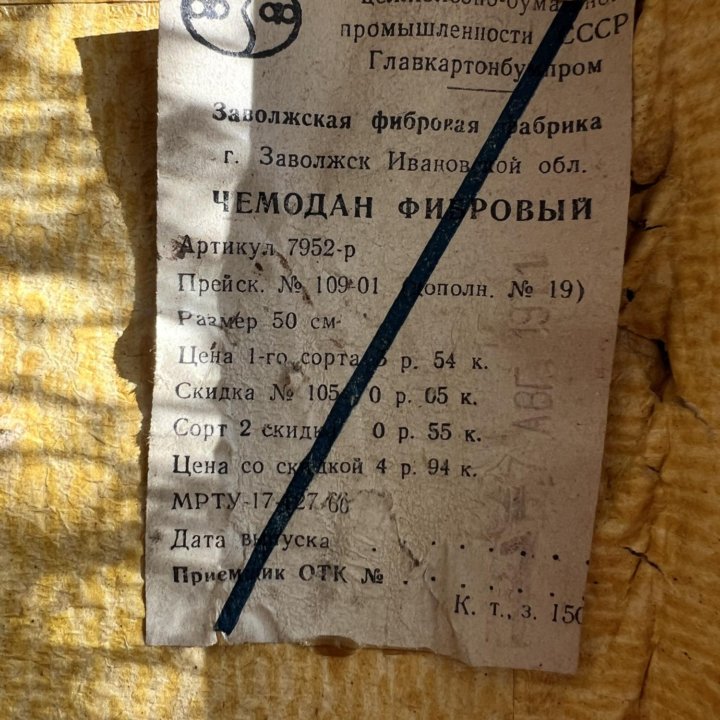 целлюлозно-бумажной
промышленности СССР
Главкартонбумпром
Заволжская фибровая фабрика
г. Заволжск Ивановской обл.
ЧЕМОДАН ФИБРОВЫЙ
Артикул 7952-р
Прейск. № 109-01 (дополн. № 19)
Размер 50 см
Цена 1-го сорта 5 р. 54 к.
Скидка № 105 0 р. 05 к.
Сорт 2 скидка 0 р. 55 к.
Цена со скидкой 4 р. 94 к.
МРТУ-17-427-66
Дата выпуска . . . . . .
Приемщик ОТК № . . . . . .
К. т., з. 150
АВГ. 1971